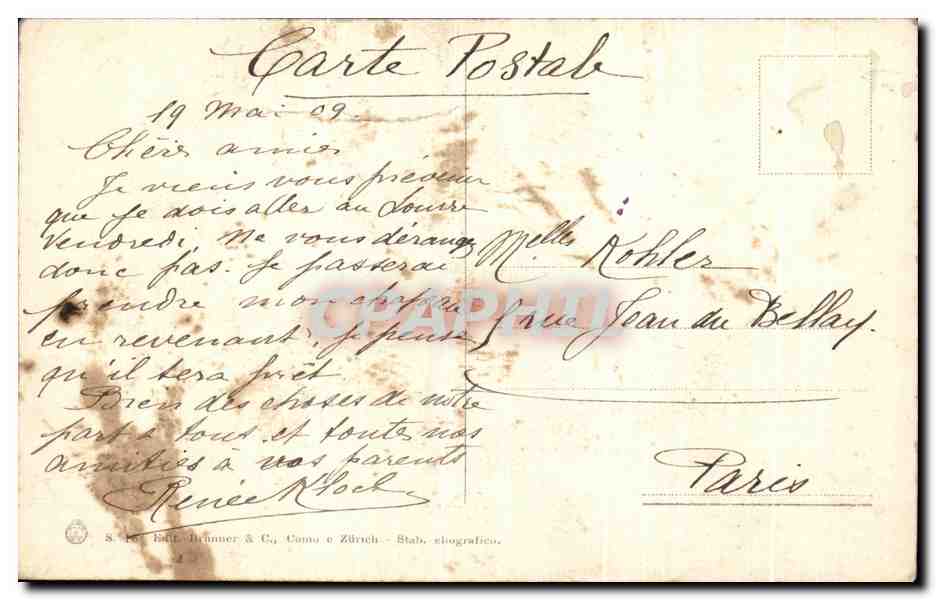 Carte Postale
19 Mai 09.
Chères amies
Je viens vous prévenir
que je dois aller au Louvre
Vendredi, Ne vous dérangez
donc pas. Je passerai
prendre mon chapeau
en revenant, je pense
qu'il sera prêt.
Bien des choses de notre
part à tous et toutes nos
amitiés à vos parents
Renée
Melles Kohler
rue Jean du Bellay.
Paris
CPAPHIL
S. Edit. Brunner & C., Como e Zürich - Stab. eliografico.